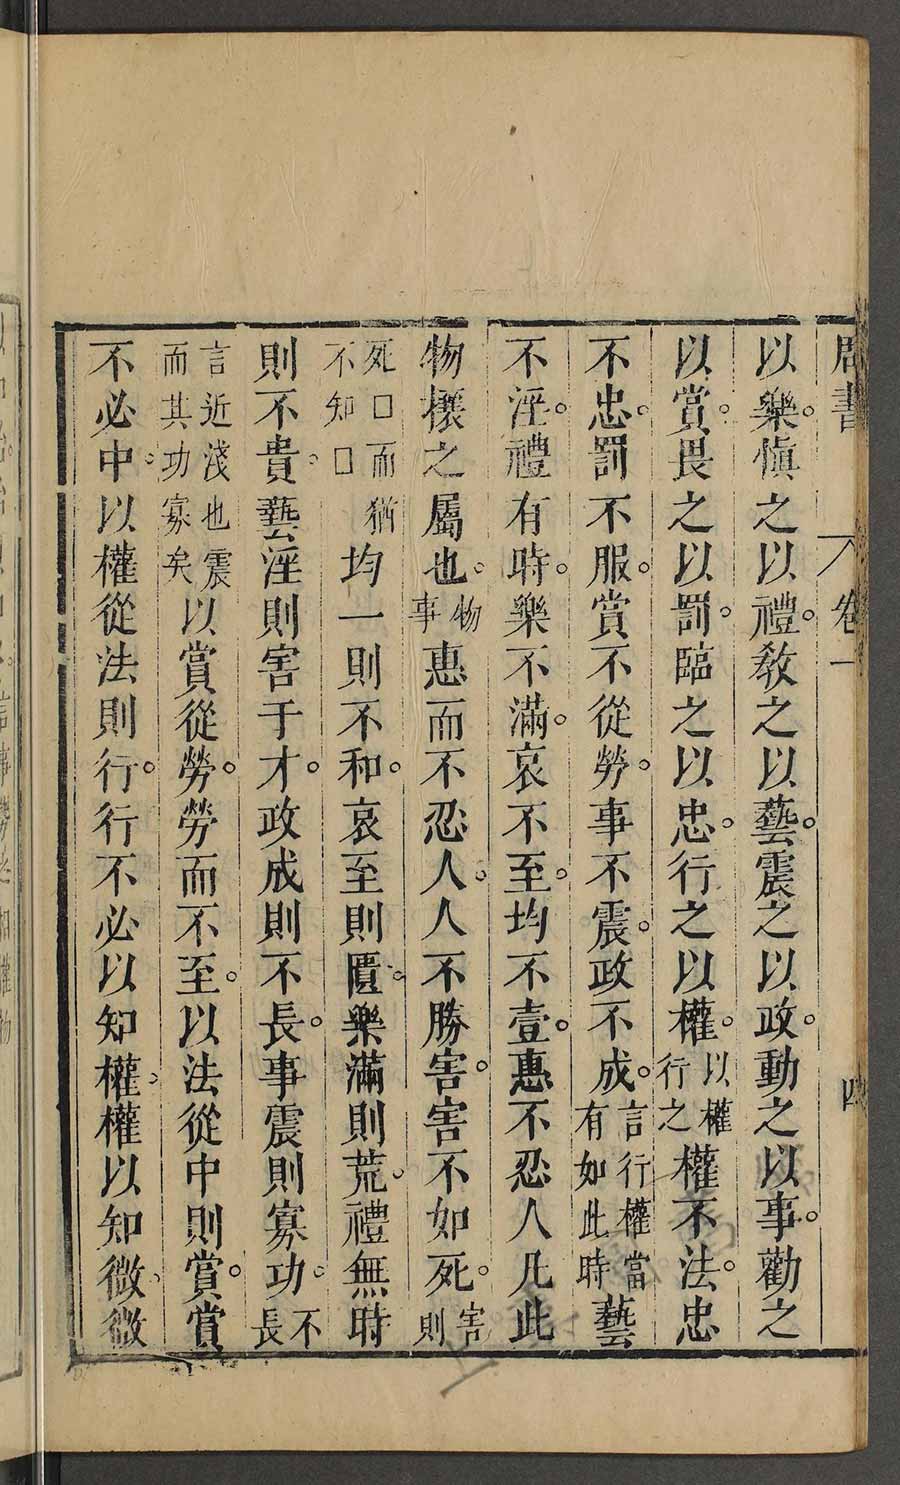 周書 卷一 四
以樂。慎之以禮。教之以藝。震之以政。動之以事。勸之
以賞。畏之以罰。臨之以忠。行之以權。以權行之權不法。忠
不忠。罰不服。賞不從勞。事不震。政不成。言行權當有如此時藝
不淫。禮有時。樂不滿。哀不至。均不壹。惠不忍人。凡此
物攘之屬也。物事惠而不忍人。人不勝害。害不如死。害則
死□而猶不知□均一則不和。哀至則匱。樂滿則荒。禮無時
則不貴。藝淫則害于才。政成則不長。事震則寡功。不長
言近淺也震而其功寡矣以賞從勞。勞而不至。以法從中則賞。賞
不必中。以權從法則行。行不必以知權。權以知微。微